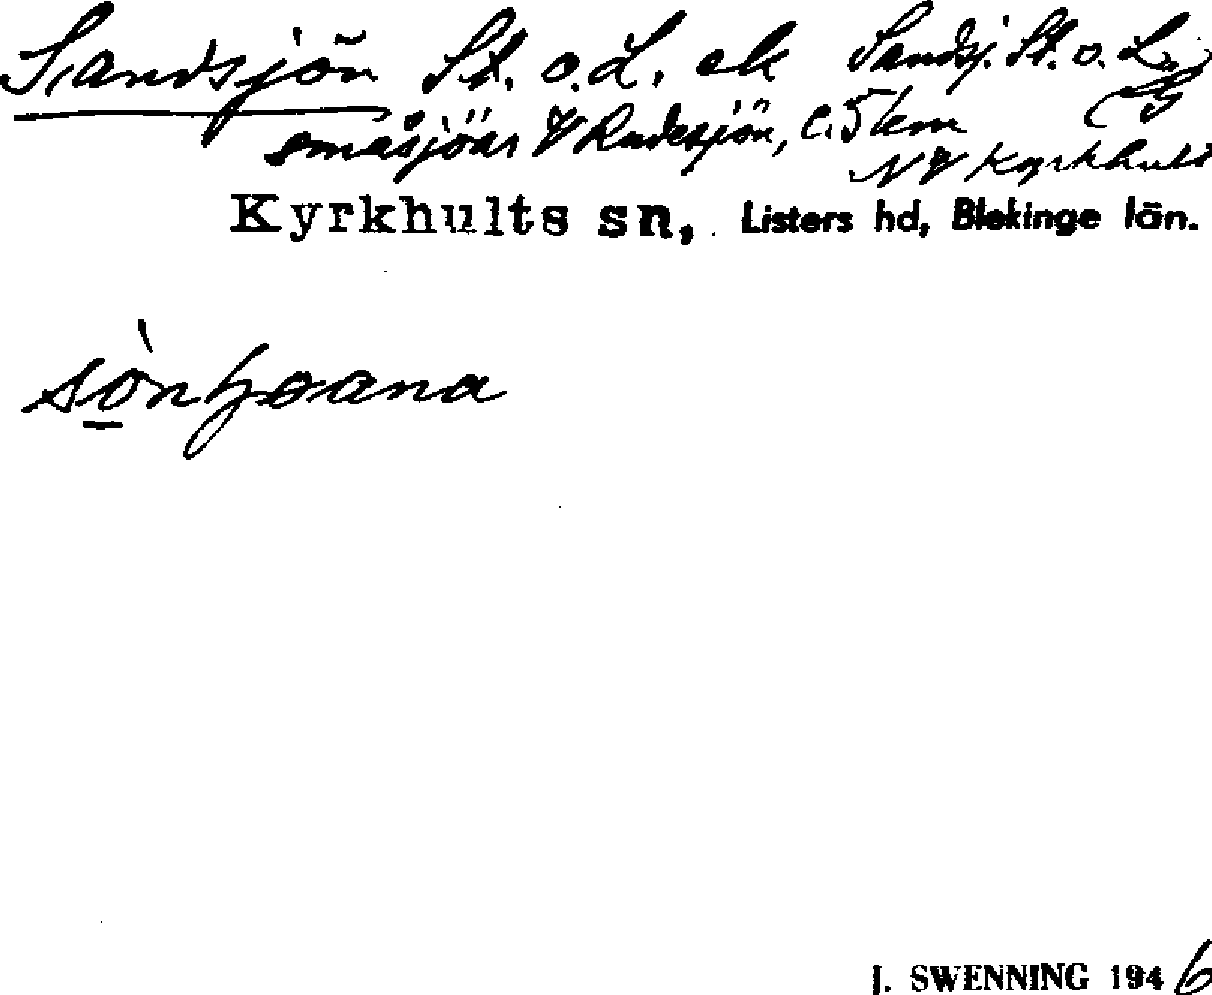 Sandsjön St. o. L. ek Sandsj. St. o. L.
småsjöar V Rudesjön, c. 5 km
NV Kyrkhult
Kyrkhults sn, Listers hd, Blekinge län.
J. SWENNING 1946